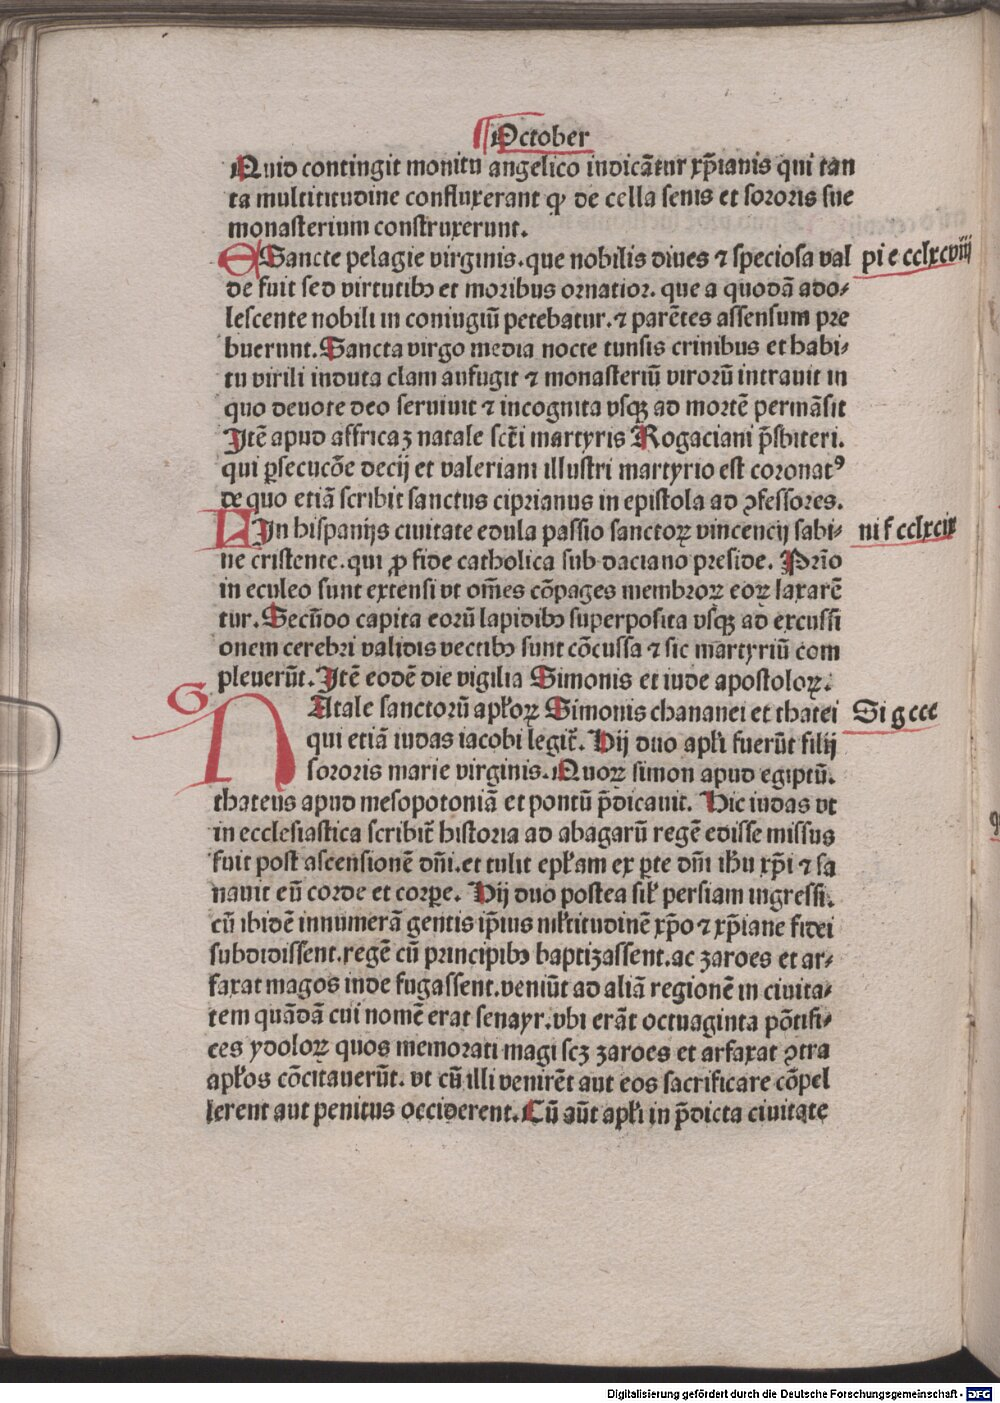 October
Quid contingit monitu angelico indicãtur xp̃ianis qui tan
ta multititudine confluxerant ꝙ de cella senis et sororis sue
monasterium construxerunt.
Sancte pelagie virginis. que nobilis diues ⁊ speciosa val pi e cclxcviij
de fuit sed virtutibꝫ et moribus ornatior. que a quodã ado-
lescente nobili in coniugiũ petebatur. ⁊ parẽtes assensum pre
buerunt. Sancta virgo media nocte tunsis crinibus et habi-
tu virili induta clam aufugit ⁊ monasteriũ virorũ intrauit in
quo deuote deo seruiuit ⁊ incognita vsqꝫ ad mortẽ permãsit
Itẽ apud affricaꝫ natale sct̃i martyris Rogaciani p̃sbiteri.
qui ꝑsecucõe decij et valeriani illustri martyrio est coronatꝰ
de quo etiã scribit sanctus ciprianus in epistola ad ꝯfessores.
In hispanijs ciuitate edula passio sanctoꝝ vincencij sabi- ni f cclxcix
ne cristente. qui ꝓ fide catholica sub daciano preside. Prĩo
in eculeo sunt extensi vt om̃es cõpages membroꝝ eoꝝ laxarẽ
tur. Secũdo capita eorũ lapidibꝫ superposita vsqꝫ ad excussi
onem cerebri validis vectibꝫ sunt cõcussa ⁊ sic martyriũ com
pleuerũt. Itẽ eodẽ die vigilia Simonis et iude apostoloꝝ.
G NAtale sanctorũ apl̃oꝝ Simonis chananei et thatei Si g ccc
qui etiã iudas iacobi legit̃. Hij duo apl̃i fuerũt filij
sororis marie virginis. Quoꝝ simon apud egiptũ.
thateus apud mesopotoniã et pontũ p̃dicauit. Hic iudas vt
in ecclesiastica scribit̃ historia ad abagarũ regẽ edisse missus
fuit post ascensionẽ dñi. et tulit epl̃am ex ꝑte dñi ihũ xp̃i ⁊ sa
nauit eũ corde et corꝑe. Hij duo postea sil̃ persiam ingressi.
cũ ibidẽ innumerã gentis ip̃ius ml̃titudinẽ xp̃o ⁊ xp̃iane fidei
subdidissent. regẽ cũ principibꝫ baptizassent. ac zaroes et ar-
faxat magos inde fugassent. veniũt ad aliã regionẽ in ciuita-
tem quãdã cui nomẽ erat senayr. vbi erãt octuaginta põtifi-
ces ydoloꝝ quos memorati magi scꝫ zaroes et arfaxat ꝯtra
apl̃os cõcitauerũt. vt cũ illi venirẽt aut eos sacrificare cõpel
lerent aut penitus occiderent. Cũ aũt apl̃i in p̃dicta ciuitate
Digitalisierung gefördert durch die Deutsche Forschungsgemeinschaft - DFG